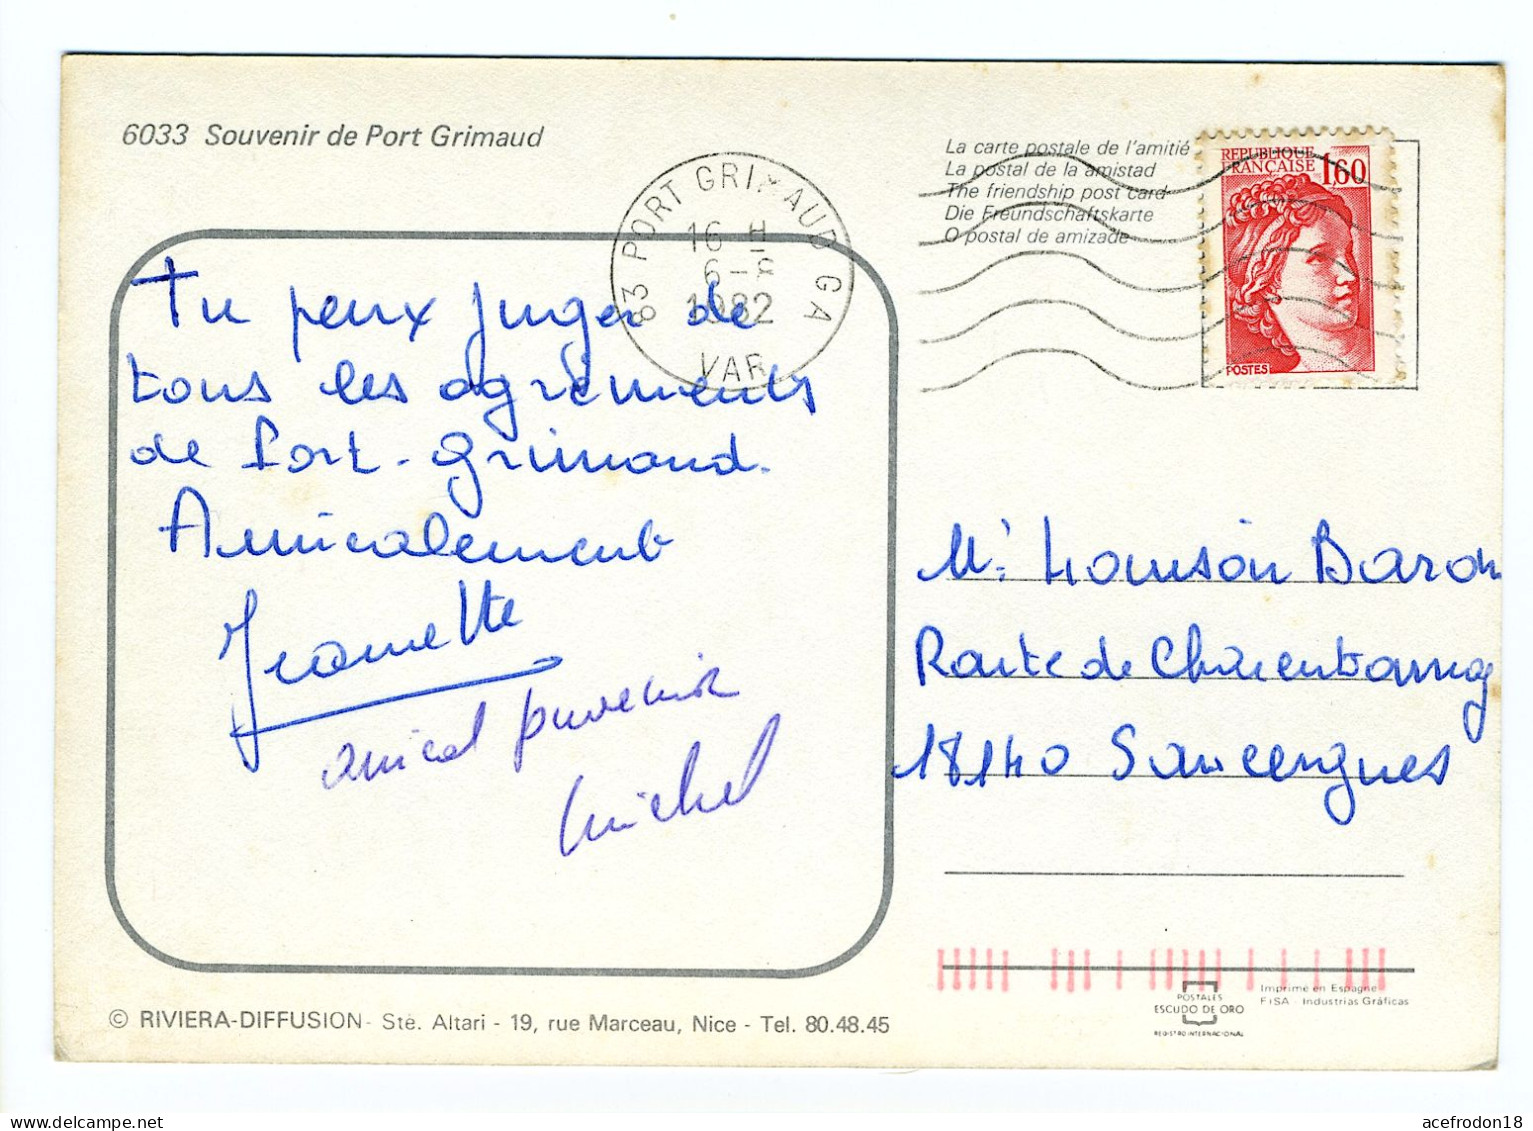 6033 Souvenir de Port Grimaud
La carte postale de l'amitié
La postal de la amistad
The friendship post card
Die Freundschaftskarte
O postal de amizade
REPUBLIQUE
FRANÇAISE 1,60
POSTES
83 PORT GRIMAUD GA
16 H
6-8
1982
VAR
Tu peux juger de
tous les agréments
de Port-Grimaud.
Amicalement
Jeannette
amical souvenir
Michel
Mr. Baron
Route de
18140 Sancergues
© RIVIERA-DIFFUSION - Sté. Altari - 19, rue Marceau, Nice - Tel. 80.48.45
POSTALES
ESCUDO DE ORO
REGISTRO INTERNACIONAL
Imprime en Espagne
FISA - Industrias Gráficas
acefrodon18